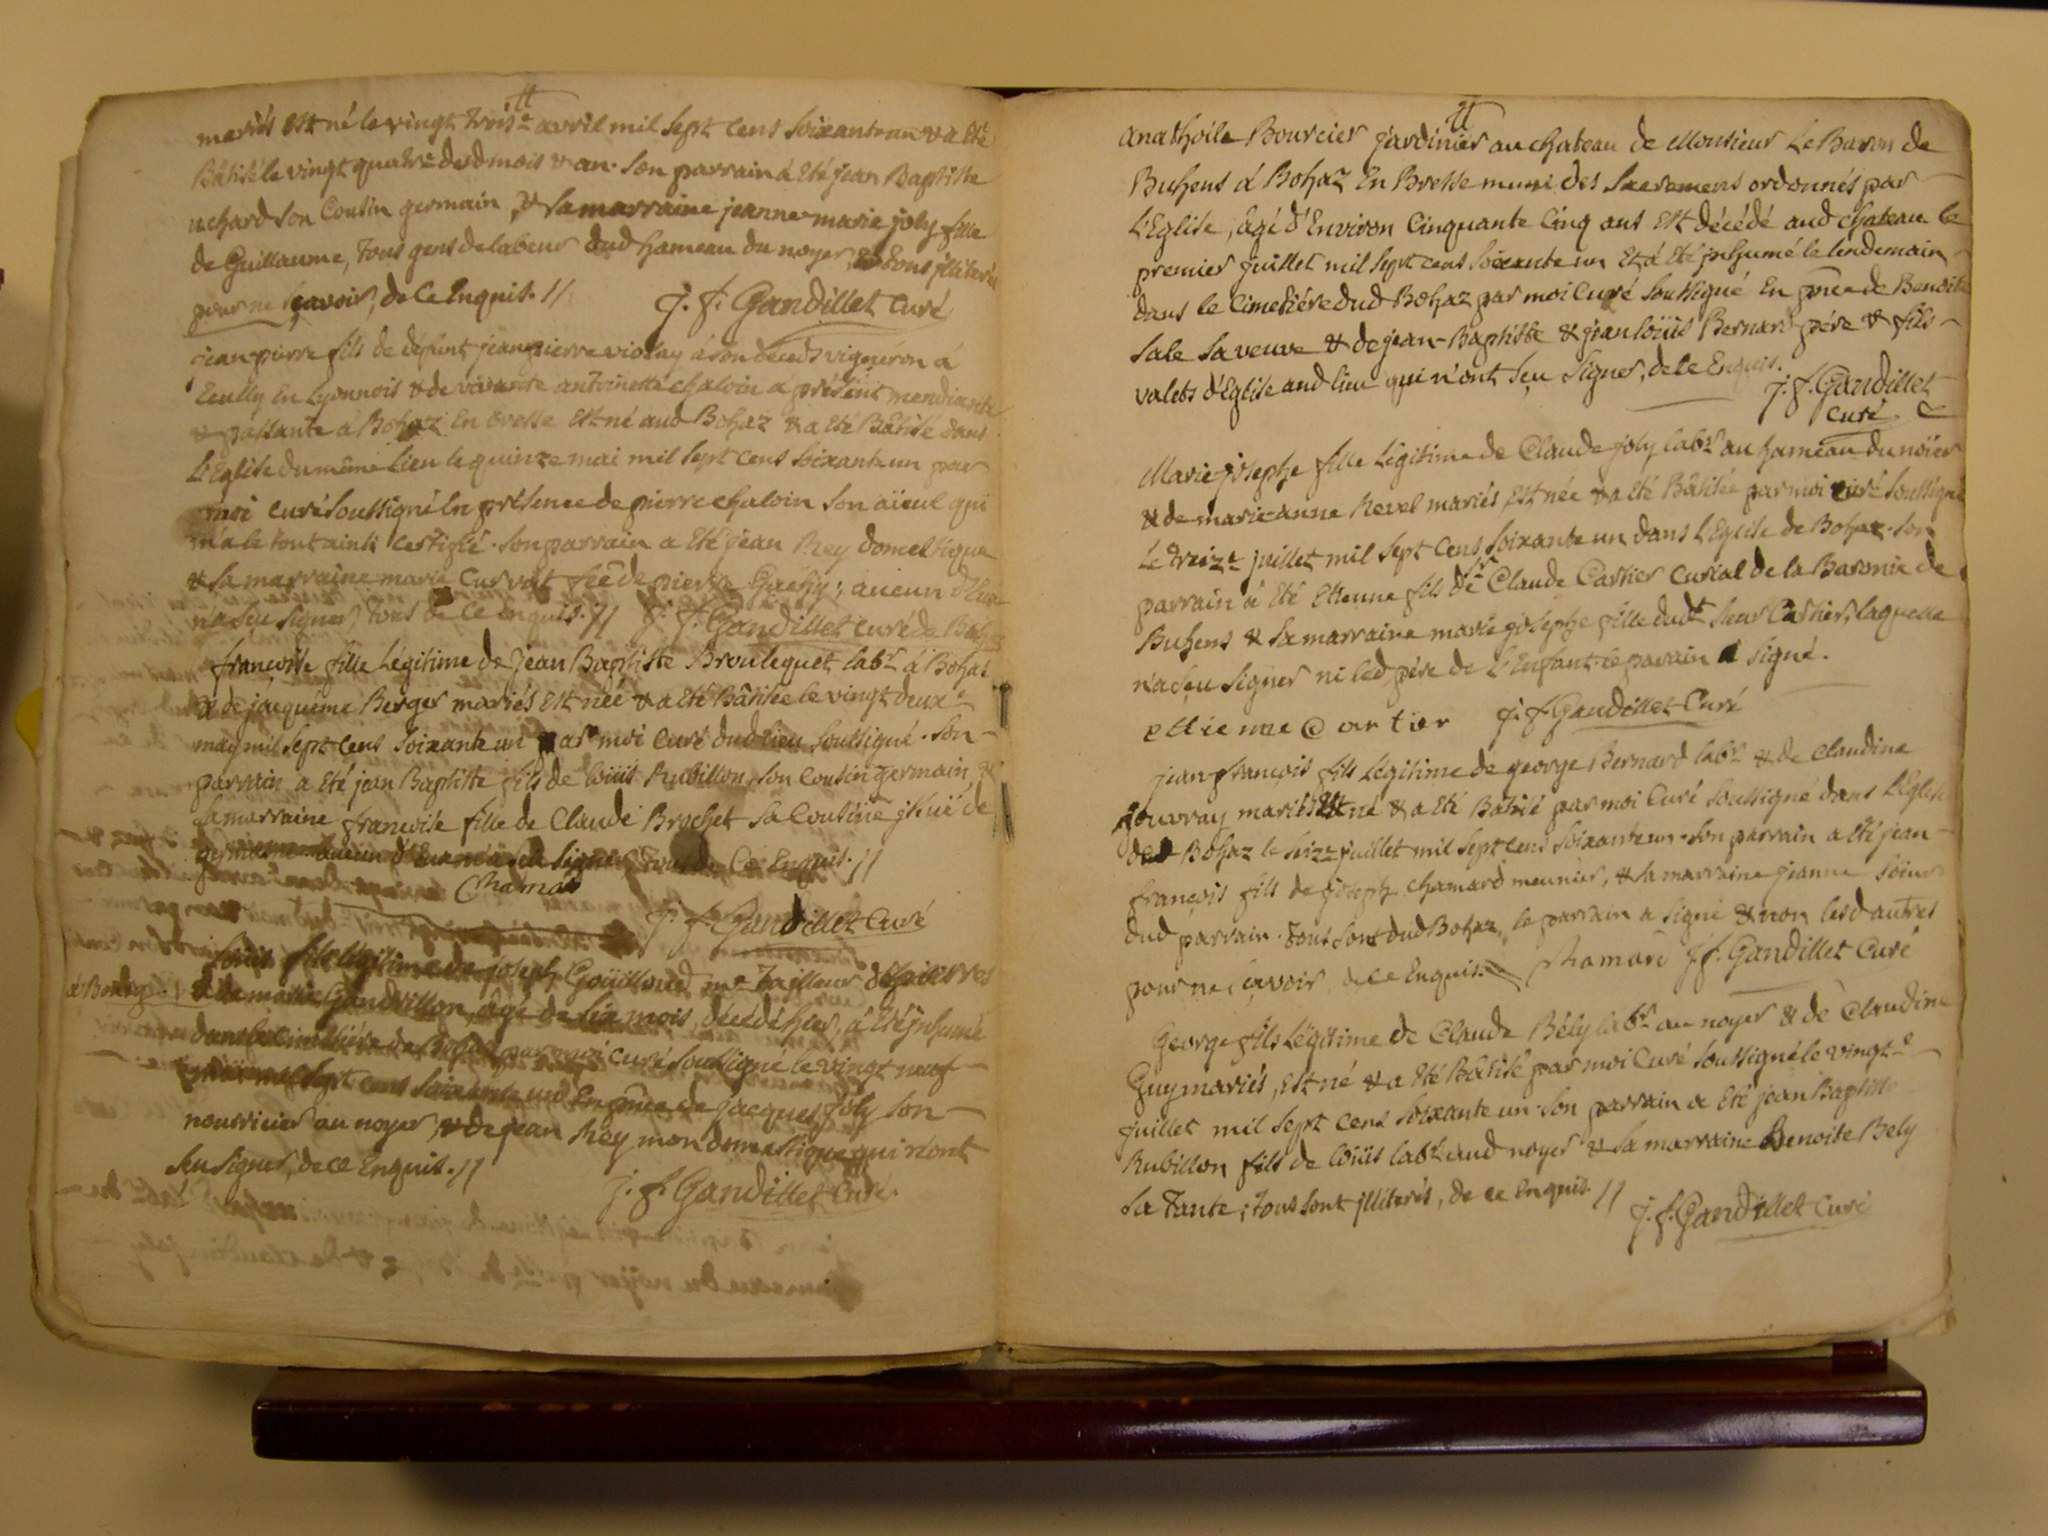 mariés est né le vingt trois.e avril mil sept cens soixante un & a Eté
Bâtisé le vingt quatre dud mois & an. son parrain a Eté jean Baptiste
uchard son Cousin germain, & sa marraine jeanne marie joly fille
de Guillaume, tous gens de labeur dud hameau du noyer, & tous jlliterés
pour ne sçavoir, de Ce Enquis. //. J. f. Gandillet Curé
jean pierre fils de défunt jean pierre violay à son décéds vigneron à
Ecully En Lyonnois & de vivante antoinette chaloin a présent mendiante
& passante à Bohaz En Bresse Est né aud Bohaz & a Eté Bâtisé dans
L'Eglise du même Lieu le quinze mai mil sept cens soixante un par
moi curé soussigné En présence de pierre chaloin son aïeul qui
m'a le tout ainsi certifié. son parrain a Eté jean Rey domestique
& sa marraine marie Curvat fée de pierre ; aucun d'Eux
n'a sçu signer, tous de Ce enquis. // J. f. Gandillet curé de Bohaz
françoise fille Légitime de jean Baptiste Broulequet lab.r à Bohaz
& de jacquême Berger mariés Est née & a Eté Bâtisée le vingt deux.e
may mil sept cens soixante un par moi Curé dud lieu soussigné. son
parrain a Eté jean Baptiste fils de loüis Rubillon, son Cousin germain, &
sa marraine françoise fille de Claude Brochet sa Cousine jssuë de
germaine. aucun d'Eux n'a sçu signer, tous de Ce Enquis. //
Chamar
J. f. Gandillet Curé
Loüis fils légitime de joseph Goüilloud m.e Tailleur d'habits
à Bourg & de marie Gandrillon, agé de six mois, décédé hier, a Eté jnhumé
dans le Cimetiére de Bohaz par moi curé soussigné le vingt neuf
mil sept cens soixante un En pnce de jacques joly son
nourricier au noyer, & de jean Rey mon domestique qui n'ont
sçu signer, de ce Enquis. //
J. f. Gandillet Curé.
anathoile Bourcier jardinier au chateau de Monsieur Le Baron de
Buhens à Bohaz En Bresse muni des Sacremens ordonnés par
L'Eglise, agé d'Environ Cinquante Cinq ans Est décédé aud chateau le
premier juillet mil sept cens soixante un Et a Eté jnhumé le lendemain
dans le Cimetiére dud Bohaz par moi Curé soussigné En pnce de Benoite
Sale sa veuve & de jean-Baptiste & jean loüis Bernard pére & fils
valets d'Eglise aud lieu qui n'ont sçu signer, de Ce Enquis.
J. f. Gandillet
Curé
Marie josephe fille Légitime de Claude joly lab.r au hameau du nöier
& de marie-anne Revel mariés, Est née & a Eté Bâtisée par moi curé soussigné
Le treiz.e juillet mil sept cens soixante un dans L'Eglise de Bohaz. son
parrain a Eté Etienne fils de S.r Claude Cartier Curial de la Baronie de
Buhens & sa marraine marie josephe fille dud.t Sieur Cartier, laquelle
n'a sçu signer ni led pére de L'Enfant. le parain a signé.
ettienne Cartier J. f. Gandillet Curé
jean françois fils Légitime de george Bernard lab.r & de Claudine
jouvray mariés Est né & a Eté Bâtisé par moi Curé soussigné dans L'Eglise
de Bohaz le seiz.e juillet mil sept cens soixante un. son parrain a Eté jean
françois fils de joseph chamard meunier, & sa marraine jeanne soeur
dud parrain. Tous sont dud Bohaz, le parrain a signé & non lesd autres
pour ne sçavoir de ce Enquis. Chamard J. f. Gandillet Curé
George fils Légitime de Claude Bély lab.r au noyer & de Claudine
Guy mariés, Est né & a Eté Bâtisé par moi Curé soussigné le vingt.e
juillet mil sept cens soixante un. son parrain a Eté jean Baptiste
Rubillon fils de loüis lab.r aud noyer & sa marraine Benoite Bely
sa Tante ; tous sont jlliterés, de ce Enquis. // J. f. Gandillet Curé